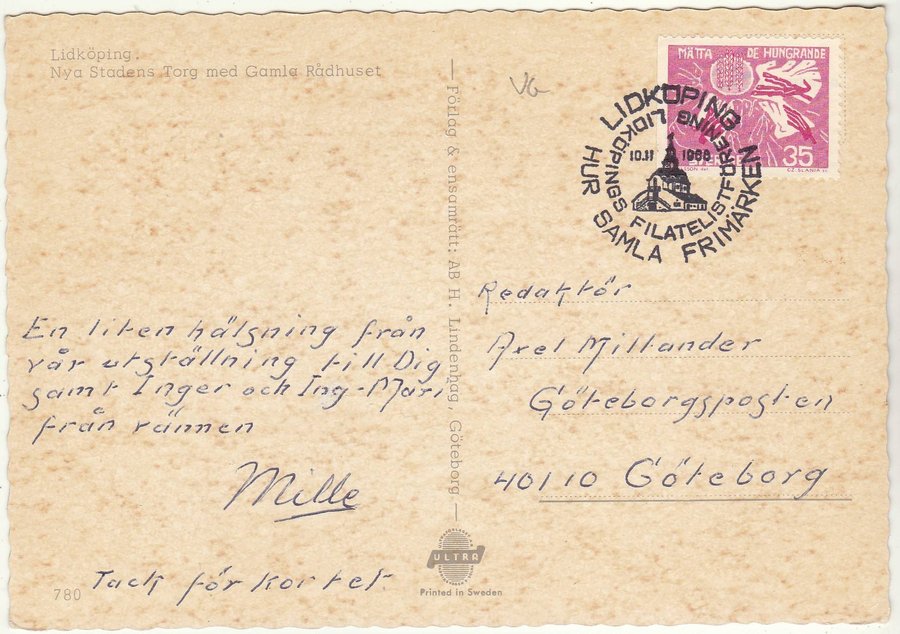 Lidköping.
Nya Stadens Torg med Gamla Rådhuset
VG
MÄTTA DE HUNGRANDE
35
CZ. SLANIA
LIDKÖPING
HUR SAMLA FRIMÄRKEN
LIDKÖPINGS FILATELISTFÖRENING
10.11 1968
Förlag & ensamrätt: AB H. Lindenhag, Göteborg
Redaktör
Axel Millander
Göteborgsposten
40110 Göteborg
En liten hälsning från
vår utställning till Dig
samt Inger och Ing-Mari
från vännen
Mille
Tack för kortet.
780
ULTRA
Printed in Sweden